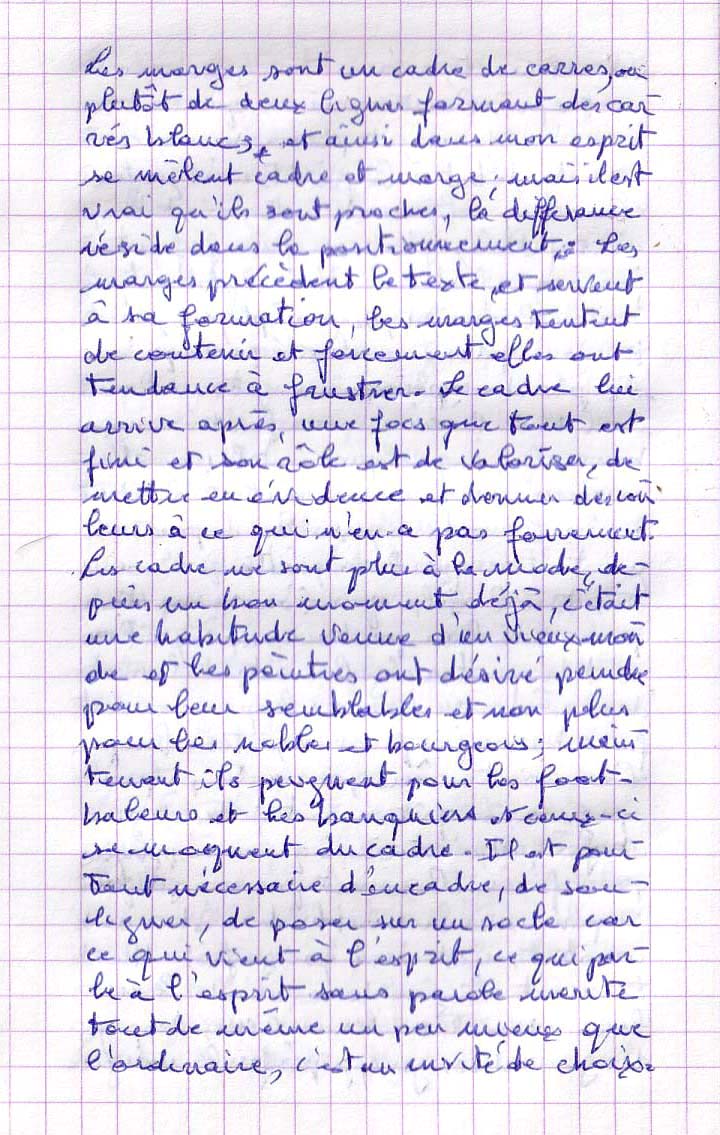 Les marges sont un cadre de carrés, ou
plutôt de deux lignes formant des car
rés blancs, et ainsi dans mon esprit
se mêlent cadre et marge; mais il est
vrai qu'ils sont proches, la différance
réside dans le positionnement. Les
marges précèdent le texte, et servent
à sa formation, les marges tentent
de contenir et forcement elles ont
tendance à frustrer. Le cadre lui
arrive après, une fois que tout est
fini et son rôle est de valoriser, de
mettre en évidence et donner des cou
leurs à ce qui n'en a pas forcement.
Les cadre ne sont plus à la mode, de-
puis un bon moment déjà, c'était
une habitude venue d'un vieux mon
de et les peintres ont désiré peindre
pour leur semblables et non plus
pour les nobles et bourgeois; main
tenant ils peignent pour les foot-
baleurs et les banquiers et ceux-ci
se moquent du cadre. Il est pour
tant nécessaire d'encadrer, de sou-
ligner, de poser sur un socle car
ce qui vient à l'esprit, ce qui par
le à l'esprit sans parole merite
tout de même un peu mieux que
l'ordinaire, c'est un invité de choix.